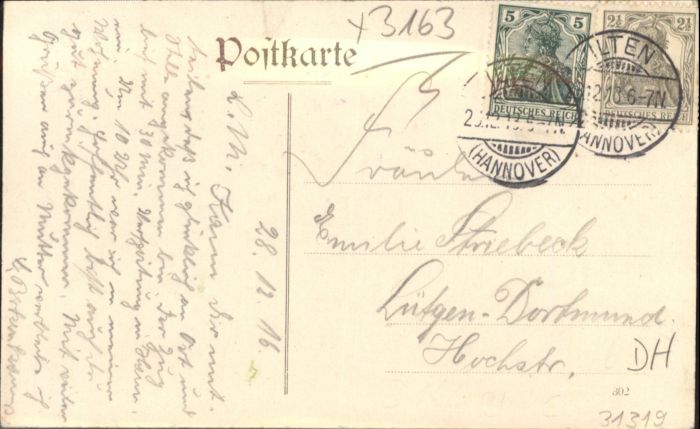 x3163
Postkarte
5
DEUTSCHES REICH
2½ 2½
DEUTSCHES REICH
ILTEN
12.13.6-7N
(HANNOVER)
(HANNOVER)
Fräulein
Emilie Striebeck
Lütgen-Dortmund.
Hochstr.
DH
302
31319
28.12.16
L. M. Kann dir mit-
teilen daß ich glücklich an Ort und
Stelle angekommen bin. Der Zug
mit 30 Min. Verspätung in
ein. Um 10 Uhr war ich in meiner
Wohnung. Hoffentlich bist auch du
gut zurückgekommen. Mit vielen
Grüßen auch an Mutter verbleibe ich